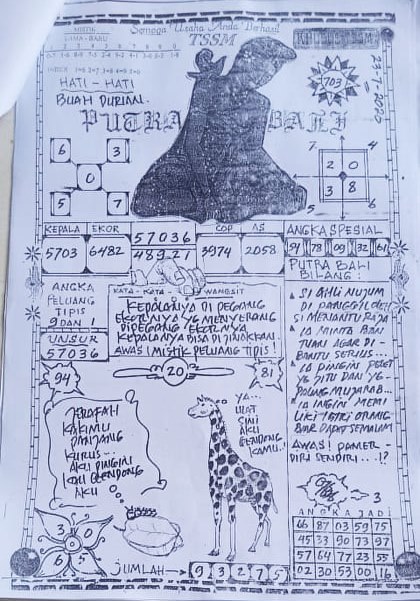 Semoga Usaha Anda Berhasil
TSSM
MISTIK
LAMA - BARU
HATI - HATI
BUAH DURIAN.
703
PUTRA BALI
6 3
0
5 7
7 4
2 0
3 8
5 6
KEPALA EKOR 57036 COP AS ANGKA SPESIAL
5703 6482 48921 3974 2058
94 78 09 32 61
PUTRA BALI
BILANG:
ANGKA
PELUANG
TIPIS
9 DAN 1
UNSUR
57036
KATA - KATA - WANGSIT
KEPALANYA DI PEGANG
EKORNYA YG MENYERANG
DIPEGANG EKORNYA
KEPALANYA BISA DI JINAKKAN.
AWAS! MISTIK PELUANG TIPIS!
SI AHLI NUJUM
DI PANGGIL OLEH
SI MENANTU RAJA
IA MINTA BAN
TUAN AGAR DI-
BANTU SERIUS...
IA PINGIN PELET
YG JITU DAN YG
PALING MUJARAB...
IA INGIN MEMI
LIKI ISTRI ORANG
BIAR DAPAT SEMALAM
AWAS! PAMER
DIRI SENDIRI...!?
94
20
81
JERAPAH
KAKIMU
PANJANG
KURUS...
AKU PINGIN
KAU GENDONG
AKU
YA...
ULAT
SINI
AKU
GENDONG
KAMU!
3
3 0
6 5
JUMLAH → 9 3 2 7 5
ANGKA JADI
66 87 03 59 75
45 33 90 73 97
57 64 77 23 55
02 30 53 00 16